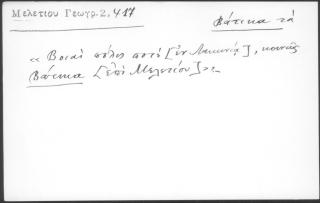 Μελετίου Γεωγρ. 2, 417
Βάτικα τά
« Βοιαὶ πόλις ποτὲ [ἐν Λακωνίᾳ], κοινῶς
Βάτικα [ἐπὶ Μελετίου] »